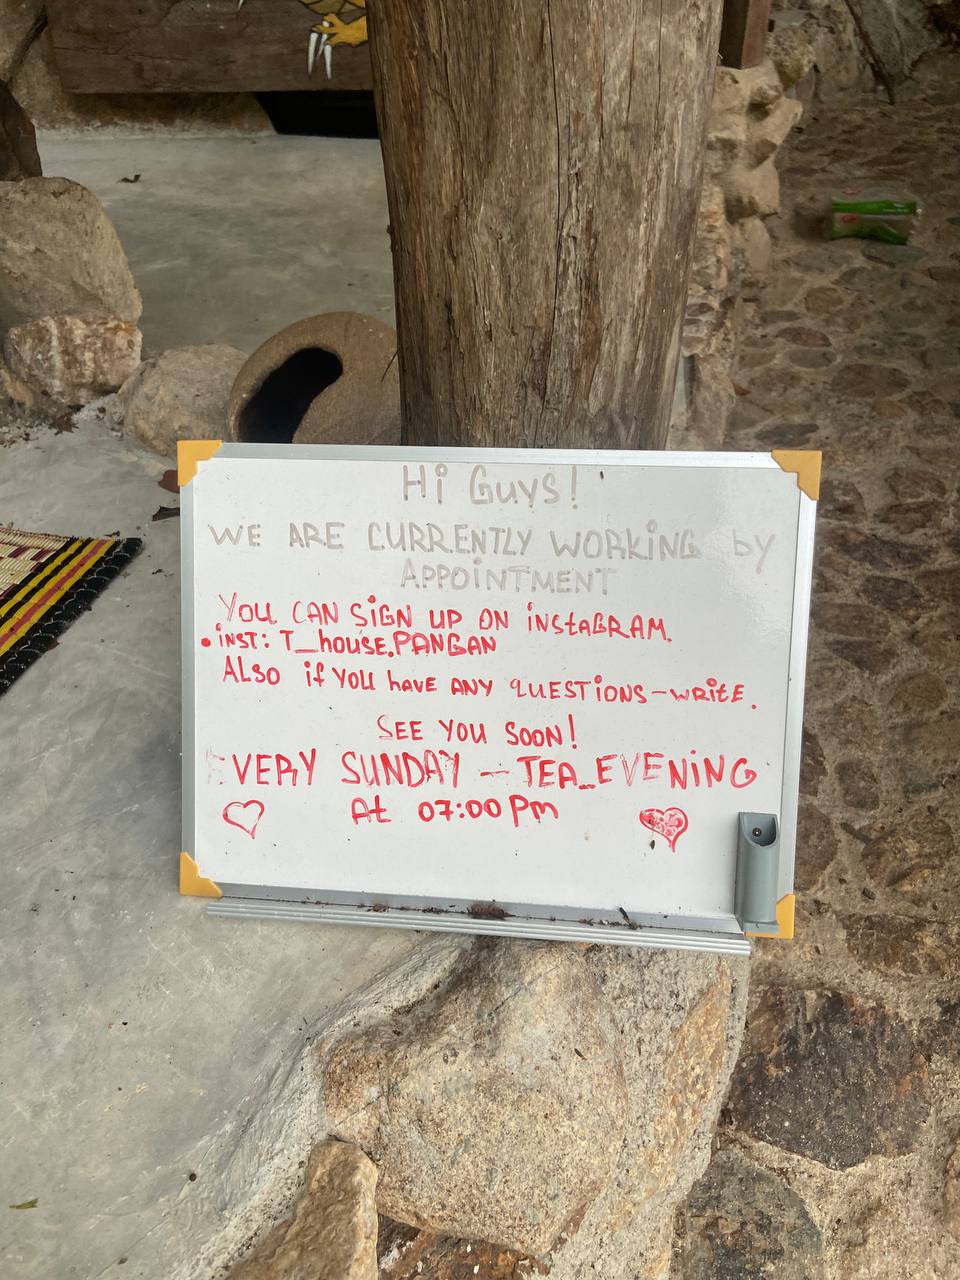 Hi Guys!
WE ARE CURRENTLY WORKING by
APPOINTMENT
YOU CAN SIGN UP ON INSTAGRAM.
• INST: T_house.PANGAN
ALSO if YOU HAVE ANY QUESTIONS – WRITE.
SEE YOU SOON!
EVERY SUNDAY – TEA_EVENING
At 07:00 Pm